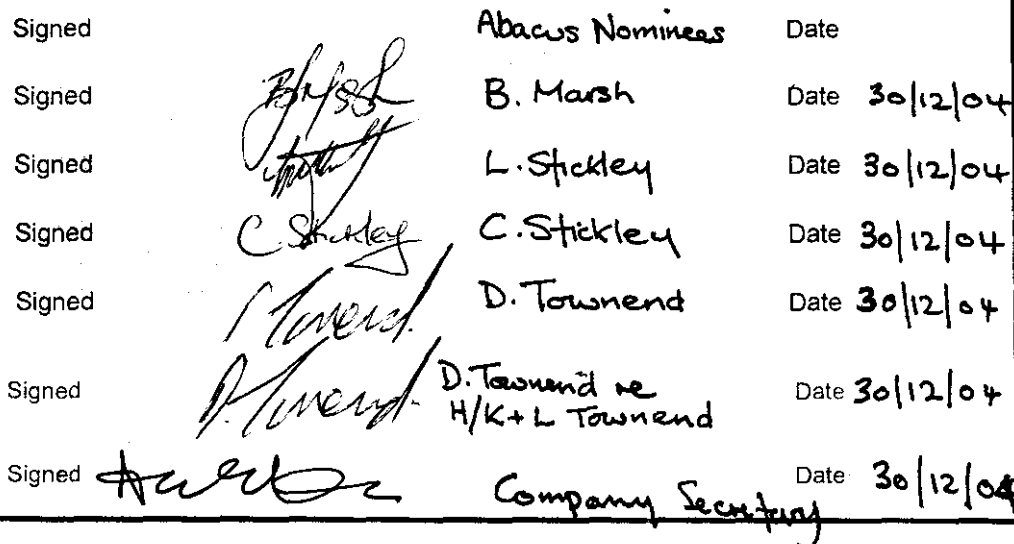 Signed Abacus Nominees Date
Signed B. Marsh Date 30/12/04
Signed L. Stickley Date 30/12/04
Signed C Stickley C. Stickley Date 30/12/04
Signed D. Townend Date 30/12/04
Signed D. Townend D. Townend re
H/K + L Townend Date 30/12/04
Signed Company Secretary Date 30/12/04